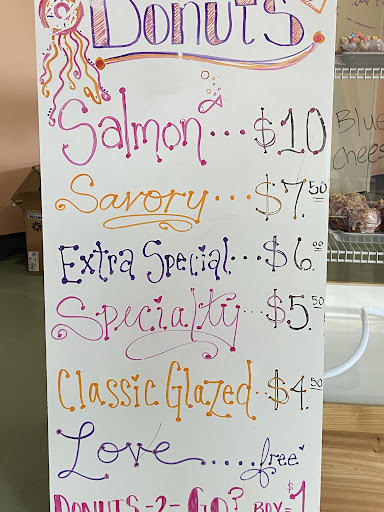 Donuts
Salmon...$10
Savory...$7.50
Extra Special...$6.00
Specialty...$5.50
Classic Glazed..$4.50
Love.....free
Donuts-2-Go? Box=$1
Blue
Cheese